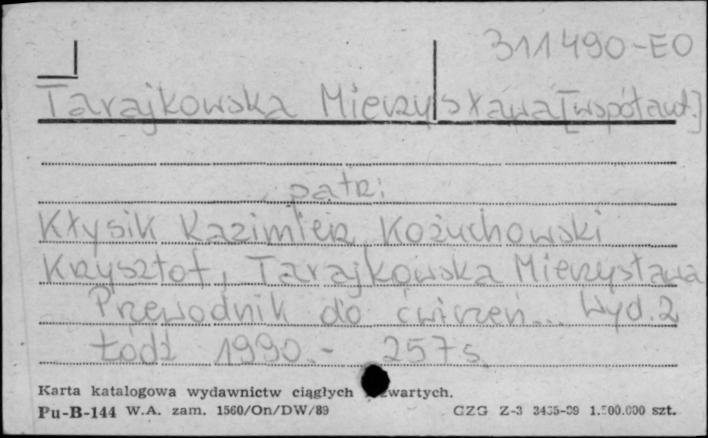 311490-EO
Tarajkowska Mieczysława [współaut.]
patrz:
Kłysik Kazimierz, Kożuchowski
Krzysztof, Tarajkowska Mieczysława
Przewodnik do ćwiczeń... Wyd. 2
Łódź 1990.- 257 s.
Karta katalogowa wydawnictw ciągłych wartych.
Pu-B-144 W.A. zam. 1560/On/DW/89 CZG Z-3 3435-89 szt.